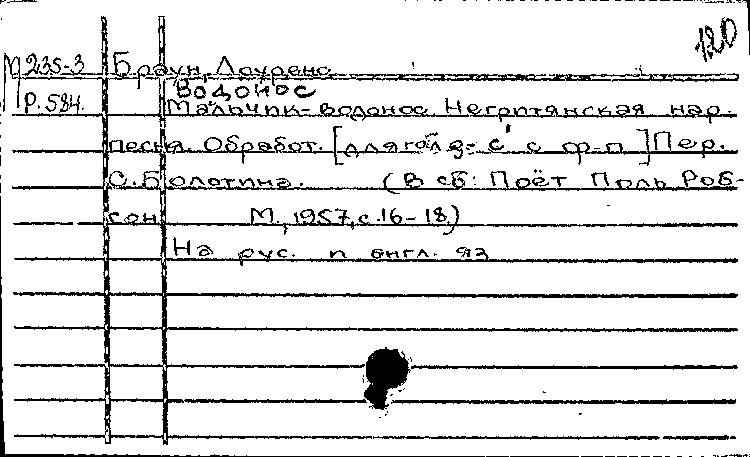 120
М 235-3 Браун, Лоуренс
Водонос
Р. 584. Мальчик-водонос. Негритянская нар.
песня. Обработ. [для гол. с ф-п] Пер.
С. Болотина. (В сб: Поёт Поль Роб-
сон М., 1957, с. 16-18.)
На рус. и англ. яз